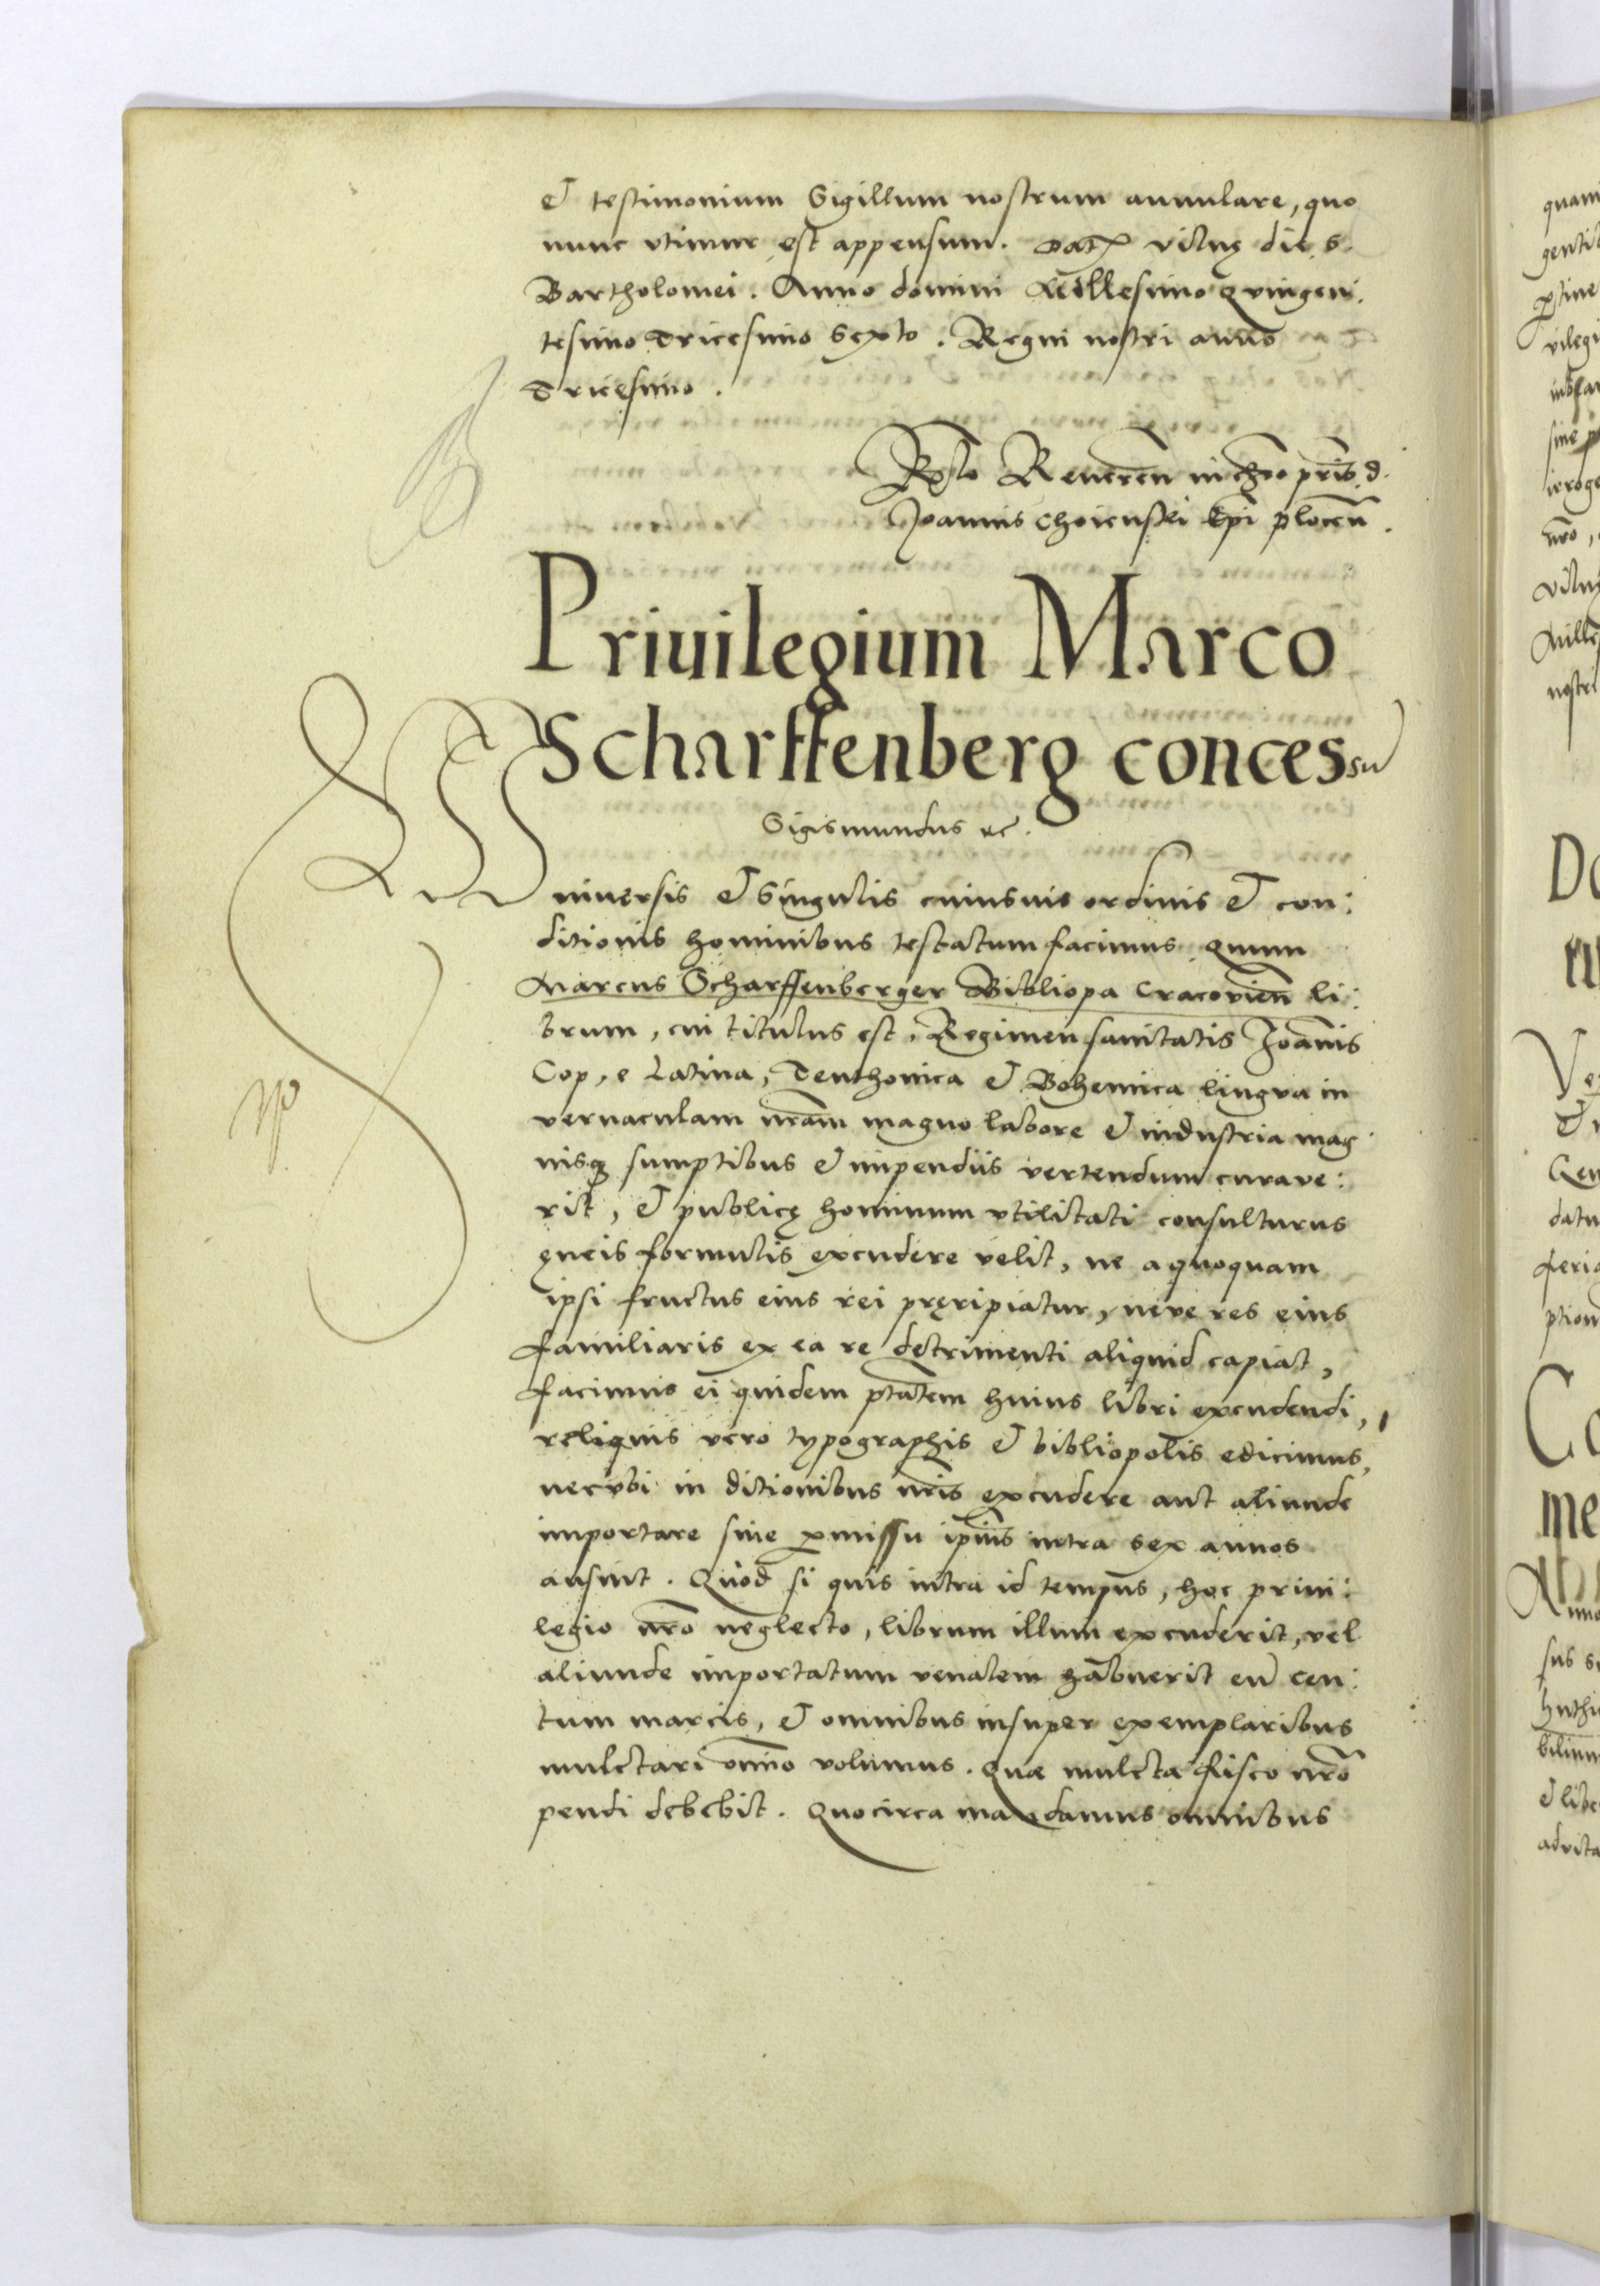 et testimonium Sigillum nostrum annulare, quo
nunc vtimur est appensum. Dat Vilnę die S.
Bartholomei. Anno domini Millesimo Qvingen:
tesimo Tricesimo Sexto. Regni nostri anno
Tricesimo.
Rlo Reveren in chro pris d.
Joannis Choienski Epi plocen.
Priuilegium Marco
Scharffenberg concessu
Sigismundus &c.
Vniuersis et Singulis cuiusuis ordinis et con:
ditionis hominibus testatum facimus Quum
Marcus Scharffenberger Bibliopa Cracovien li:
brum, cui titulus est, Regimen sanitatis Joannis
Cop, e Latina, Teuthonica et Bohemica lingva in
vernaculam nram magno labore et industria mag
nisq sumptibus et impendiis vertendum curave:
rit, et publicę hominum vtilitati consulturus
ęneis formulis excudere velit, ne a quoquam
ipsi fructus eius rei pręripiatur, neve res eius
familiaris ex ea re detrimenti aliquid capiat,
facimus ei quidem ptatem huius libri excudendi,
reliquis vero typographis et bibliopolis edicimus,
necvbi in ditionibus nris excudere aut aliunde
importare sine pmissu ipius intra sex annos
ausint. Quod si quis intra id tempus, hoc priui:
legio nro neglecto, librum illum excuderit, vel
aliunde importatum venalem habuerit eu cen:
tum marcis, et omnibus insuper exemplaribus
mulctari omino volumus. Quae mulcta fisco nro
pendi debebit. Quocirca mandamus omnibus